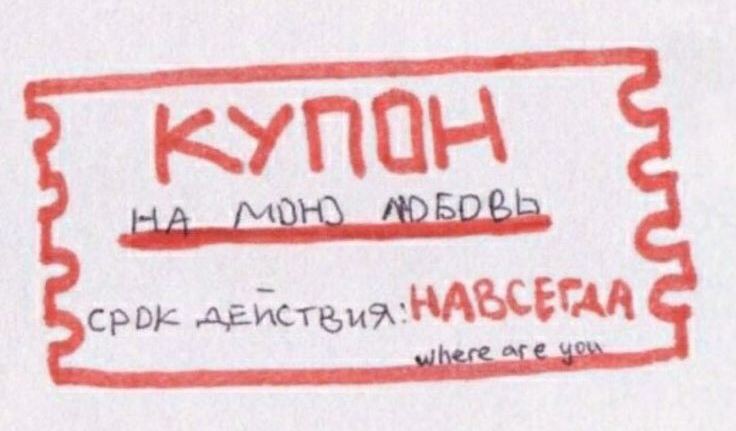 КУПОН
НА МОЮ ЛЮБОВЬ
СРОК ДЕЙСТВИЯ: НАВСЕГДА
where are you